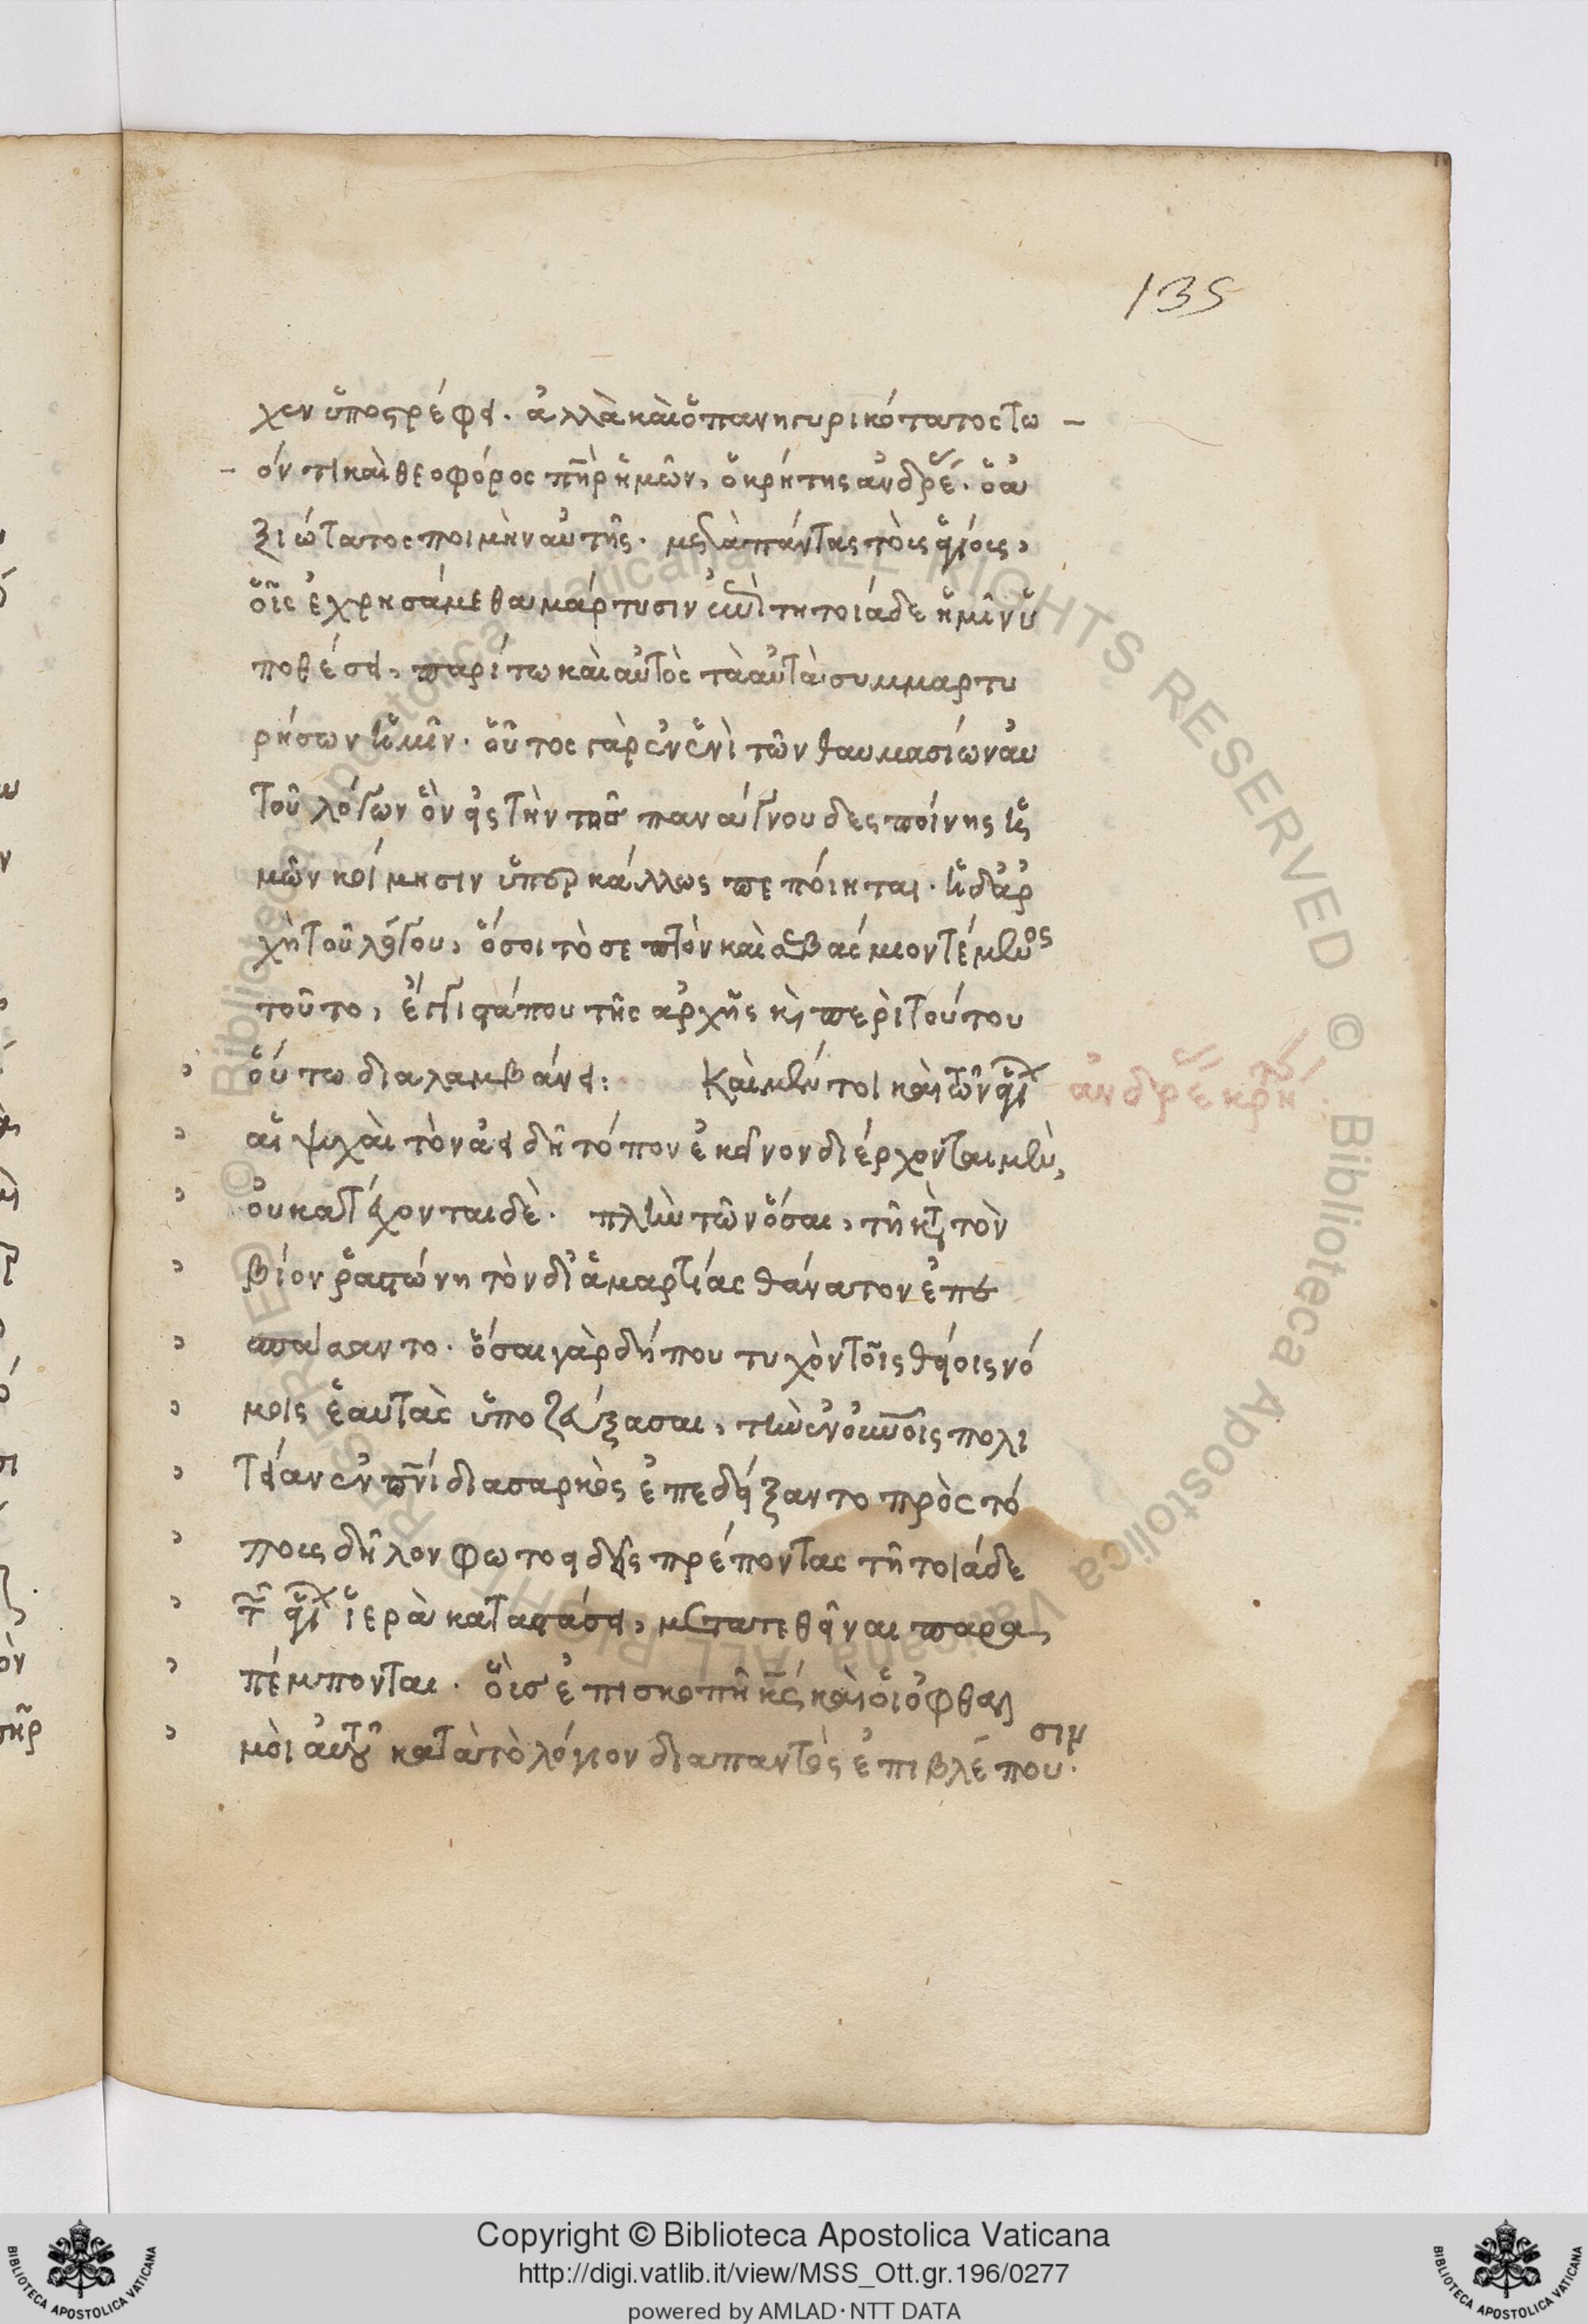 135
χεν ὑποστρέφει. ἀλλὰ καὶ ὁ πανηγυρικότατος τῷ
ὄντι καὶ θεοφόρος πηρ ἡμῶν, ὁ κρήτης ἀνδρέ. ὁ ἀ
ξιώτατος ποιμὴν αὐτῆς. μετὰ πάντας τοὺς ἁγίους,
οἷς ἐχρησάμεθα μάρτυσιν ἐπὶ τῆ τοιάδε ἡμῖν ὑ
ποθέσει, παρίτω καὶ αὐτὸς τὰ αὐτὰ συμμαρτυ
ρήσων ἡμῖν. οὗτος γὰρ ἐν ἑνὶ τῶν θαυμασίων αὐ
τοῦ λόγων ὃν εἰς τὴν τῆς παναγνου δεσποίνης ἡ
μῶν κοίμησιν ὑπερκάλλως πεποίηται. ἡ δ' ἀρ
χὴ τοῦ λόγου, ὅσοι τὸ σεπτὸν καὶ σεβάσμιον τέμενος
τοῦτο, ἔστι γάρ που τῆς ἀρχῆς κ περὶ τούτου
οὕτω διαλαμβάνει: Καὶ μέντοι καὶ τῶν ἁγι
ἀνδρέ κρή
αἱ ψυχαὶ τὸν ἀειδῆ τόπον ἐκεῖνον διέρχονται μὲν,
οὐ κατέχονται δέ. πλὴν τῶν ὅσαι, τῆ κτ τὸν
βίον ῥαστώνη τὸν δι' ἁμαρτίας θάνατον ἐπε
σπάσαντο. ὅσαι γὰρ δήπου τυχὸν τοῖς θείοις νό
μοις ἑαυτὰς ὑποζεύξασαι, τὴν ἐν οὐνοις πολι
τείαν ἐν πνι διὰ σαρκὸς ἐπεδείξαντο πρὸς τό
πους δῆλον φωτοειδεῖς πρέποντας τῆ τοιάδε
τ ἁγι ἱερὰ καταστάσει, μετατεθῆναι παρα
πέμπονται. οἷς ἐπισκοπὴ κς καὶ οἱ ὀφθαλ
μοὶ αὐτοῦ κατὰ τὸ λόγιον διαπαντὸς ἐπιβλέπουσιν.
Copyright © Biblioteca Apostolica Vaticana
http://digi.vatlib.it/view/MSS_Ott.gr.196/0277
powered by AMLAD·NTT DATA